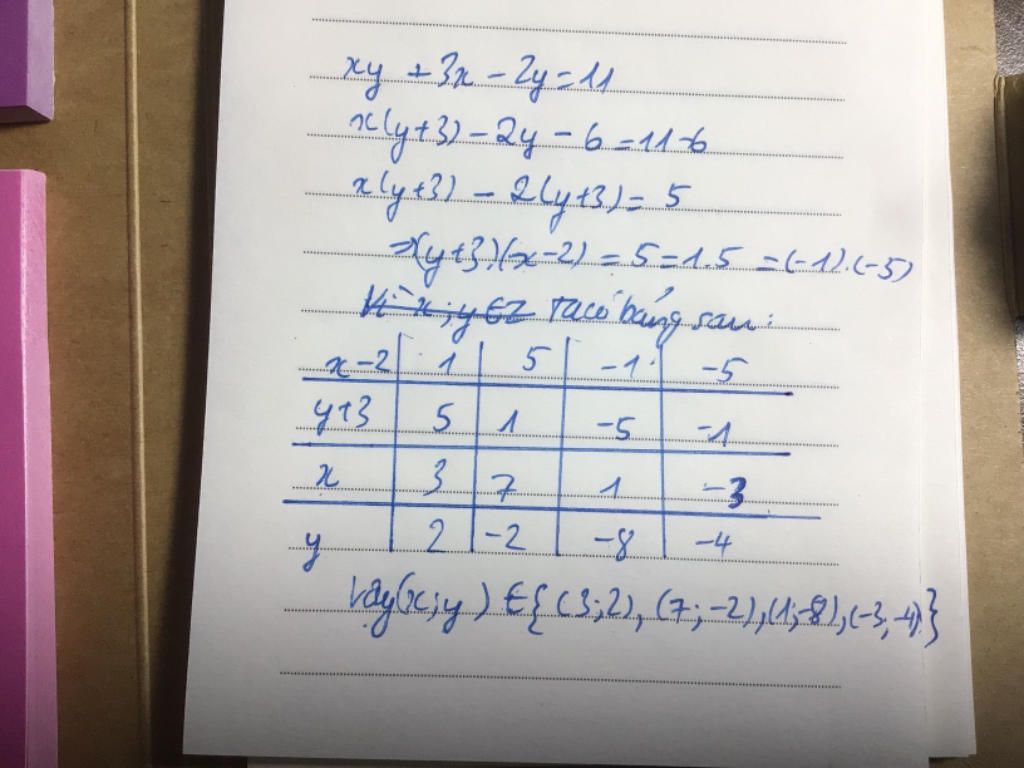 xy + 3x - 2y = 11
x(y+3) - 2y - 6 = 11-6
x(y+3) - 2(y+3) = 5
⇒(y+3).(x-2) = 5 = 1.5 = (-1).(-5)
Vì x;y∈Z Ta có bảng sau:
x-2 1 5 -1 -5
y+3 5 1 -5 -1
x 3 7 1 -3
y 2 -2 -8 -4
Vậy(x;y) ∈{(3;2), (7;-2),(1;-8),(-3;-4)}